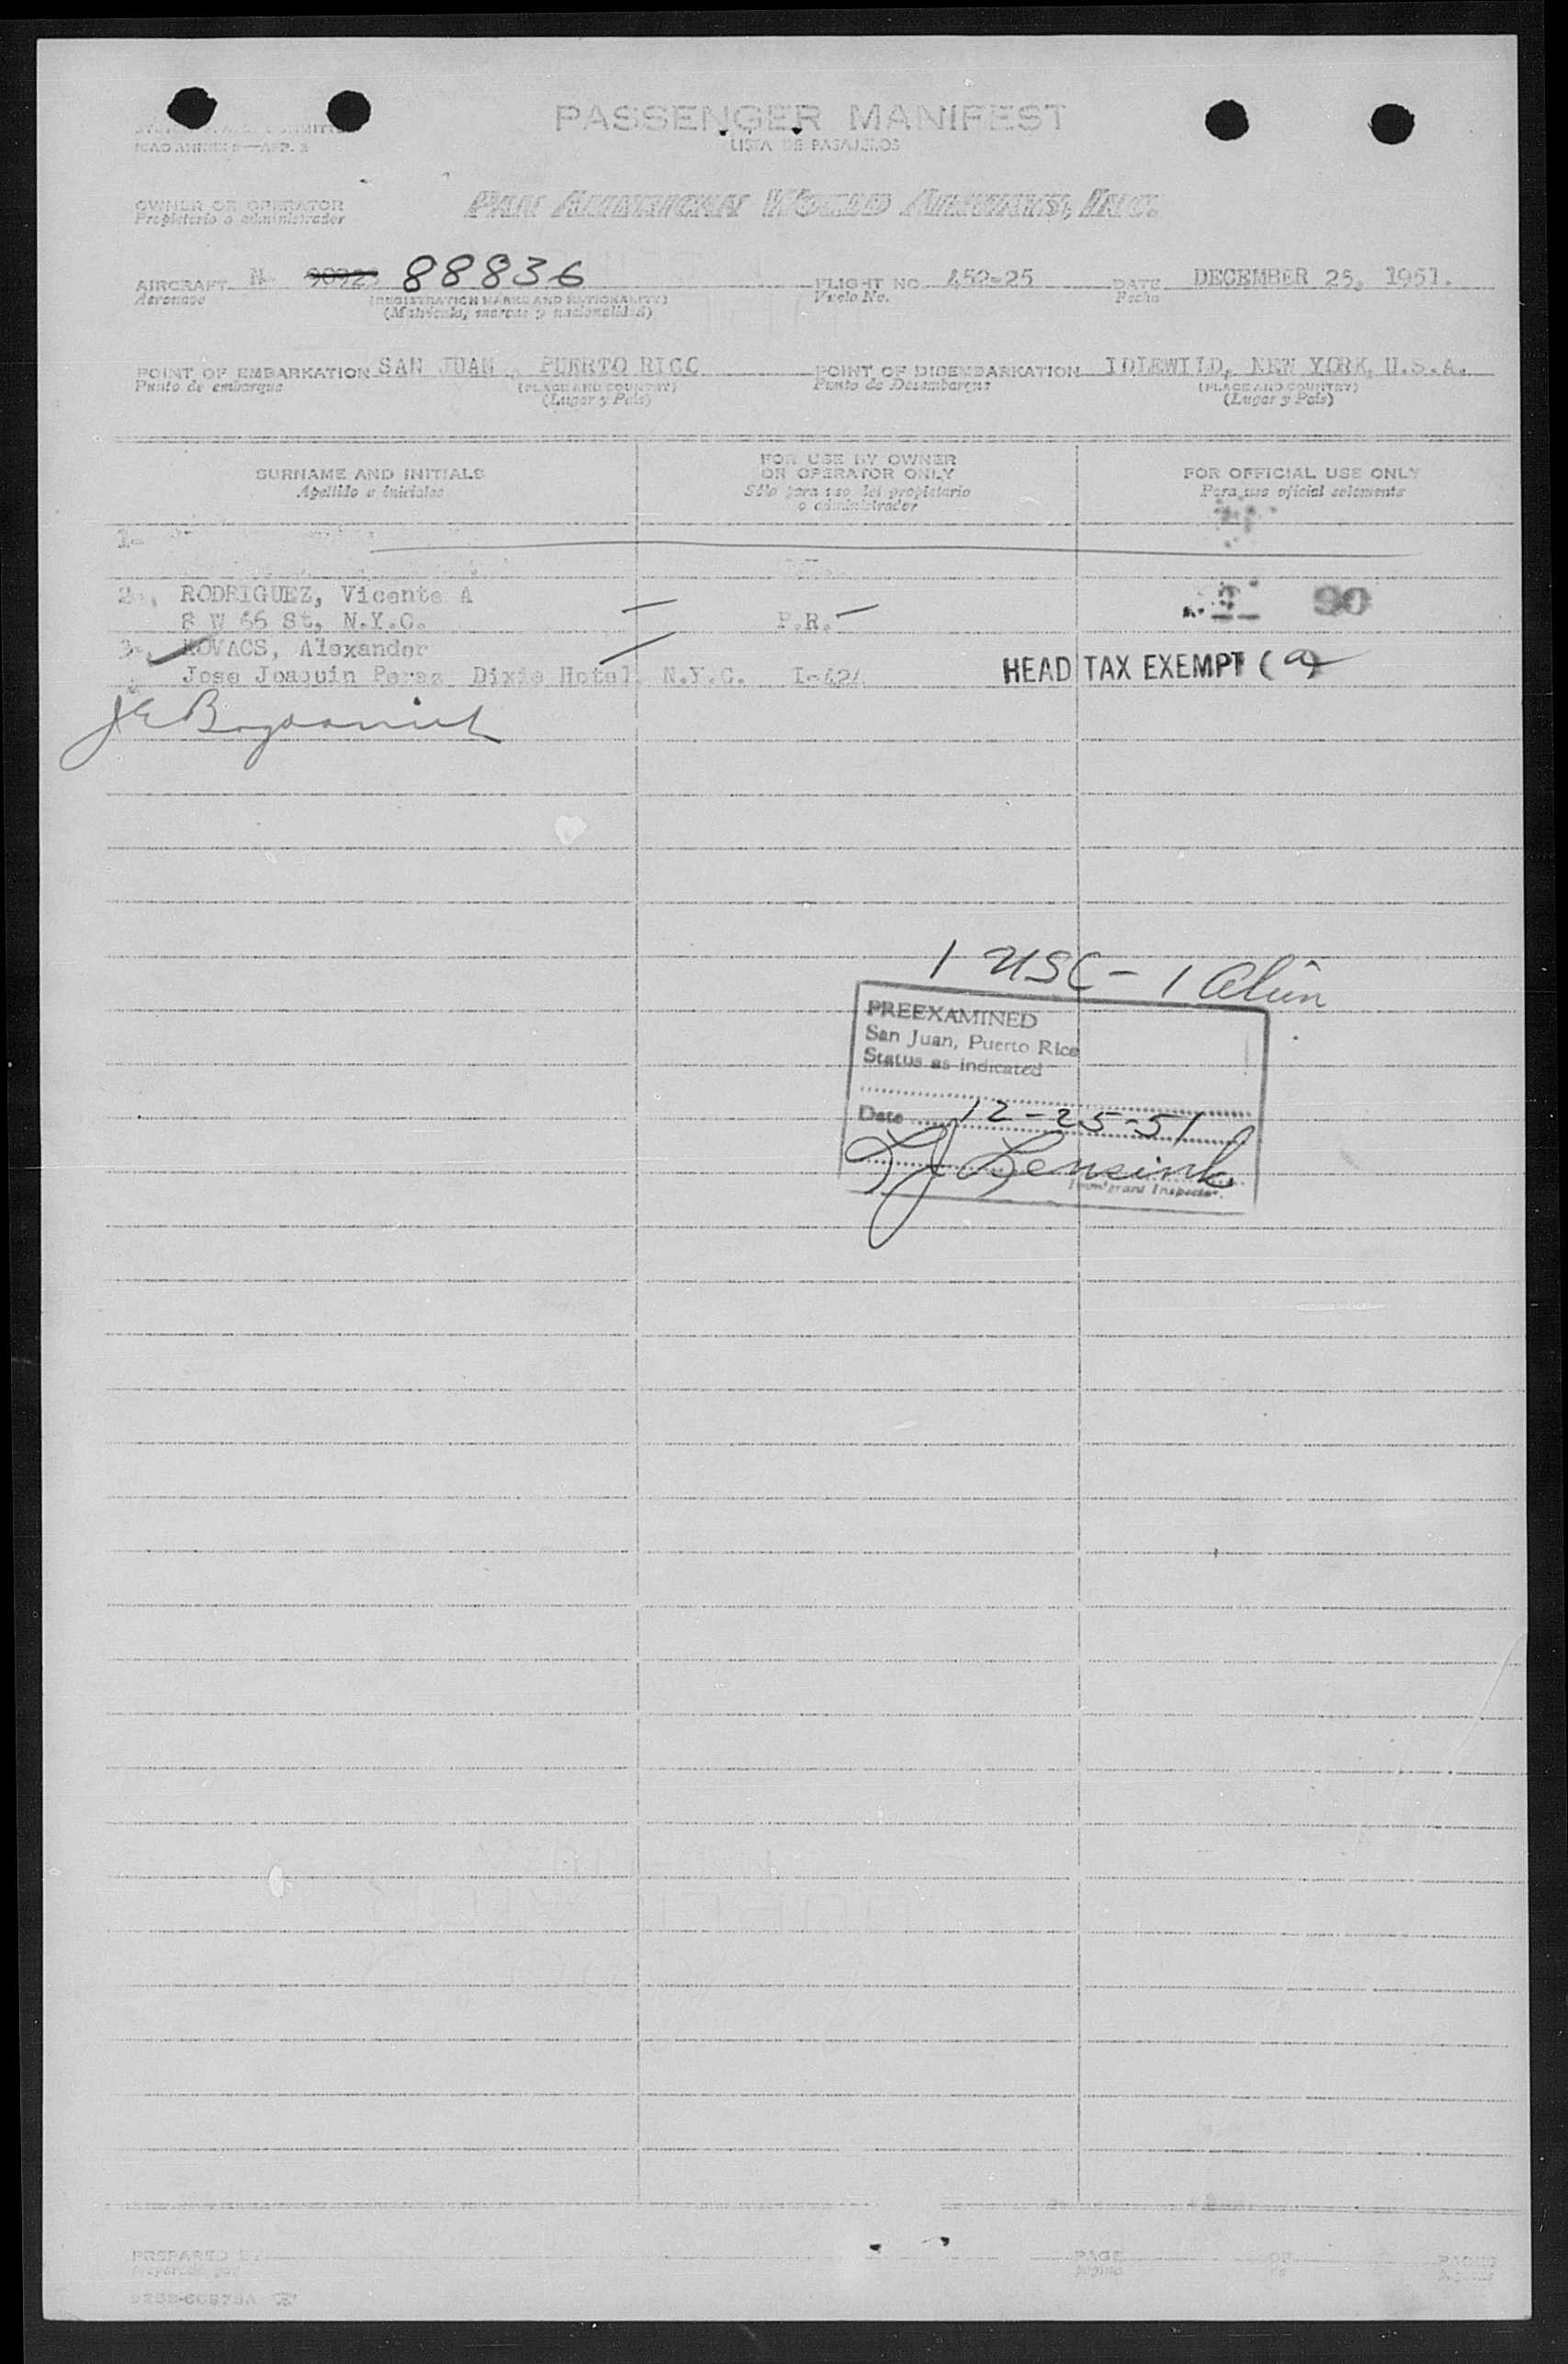 PASSENGER MANIFEST
LISTA DE PASAJEROS
ICAO ANNEX 9—APP. 3
OWNER OR OPERATOR
Propietario o administrador
PAN AMERICAN WORLD AIRWAYS, INC.
AIRCRAFT N- 88836 FLIGHT NO 452-25 DATE DECEMBER 25, 1951.
Aeronave (REGISTRATION MARKS AND NATIONALITY) Vuelo No. Fecha
(Matrícula, marcas y nacionalidad)
POINT OF EMBARKATION SAN JUAN, PUERTO RICO POINT OF DISEMBARKATION IDLEWILD, NEW YORK, U.S.A.
Punto de embarque (PLACE AND COUNTRY) Punto de Desembarque (PLACE AND COUNTRY)
(Lugar y País) (Lugar y País)
SURNAME AND INITIALS
Apellido e iniciales
FOR USE BY OWNER
OR OPERATOR ONLY
Sólo para uso del propietario
o administrador
FOR OFFICIAL USE ONLY
Para uso oficial solamente
1-
2-. RODRIGUEZ, Vicente A 90
8 W 66 St, N.Y.C. P.R.
3-. KOVACS, Alexander
Jose Joaquin Perez Dixie Hotel N.Y.C. I-424 HEAD TAX EXEMPT (a)
1 USC - 1 Alien
PREEXAMINED
San Juan, Puerto Rico
Status as indicated
Date 12-25-51
LJ Lensink
Immigrant Inspector.
PREPARED BY PAGE OF PAGES
Preparado por página de